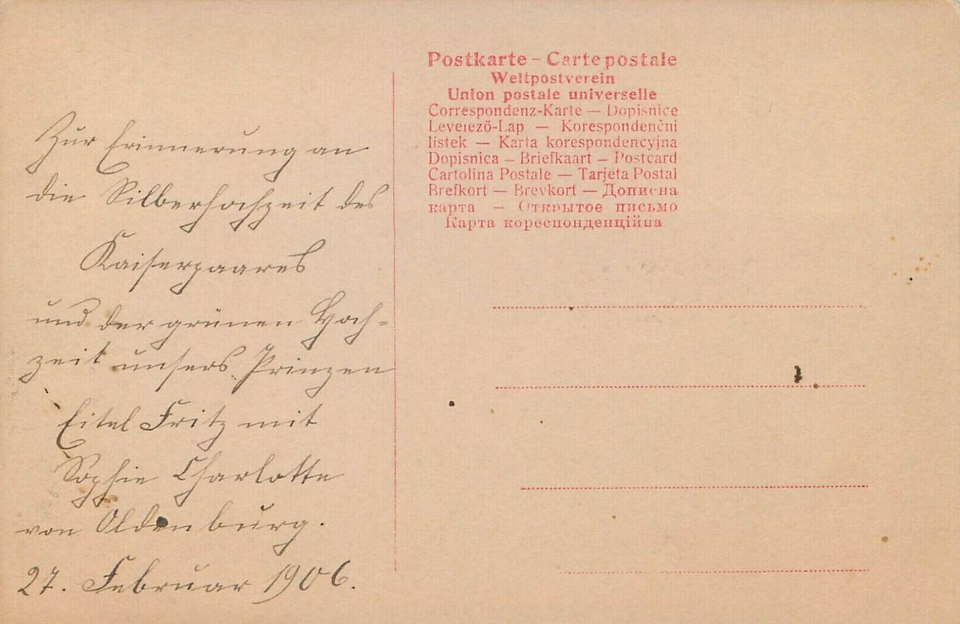 Zur Erinnerung an
die Silberhochzeit des
Kaiserpaares
und der grünen Hoch-
zeit unsers Prinzen
Eitel Fritz mit
Sophie Charlotte
von Oldenburg.
27. Februar 1906.
Postkarte – Carte postale
Weltpostverein
Union postale universelle
Correspondenz-Karte — Dopisnice
Levelező-Lap — Korespondenční
lístek — Karta korespondencyjna
Dopisnica – Briefkaart – Postcard
Cartolina Postale – Tarjeta Postal
Brefkort – Brevkort – Дописна
карта — Открытое письмо
Карта кореспонденційна